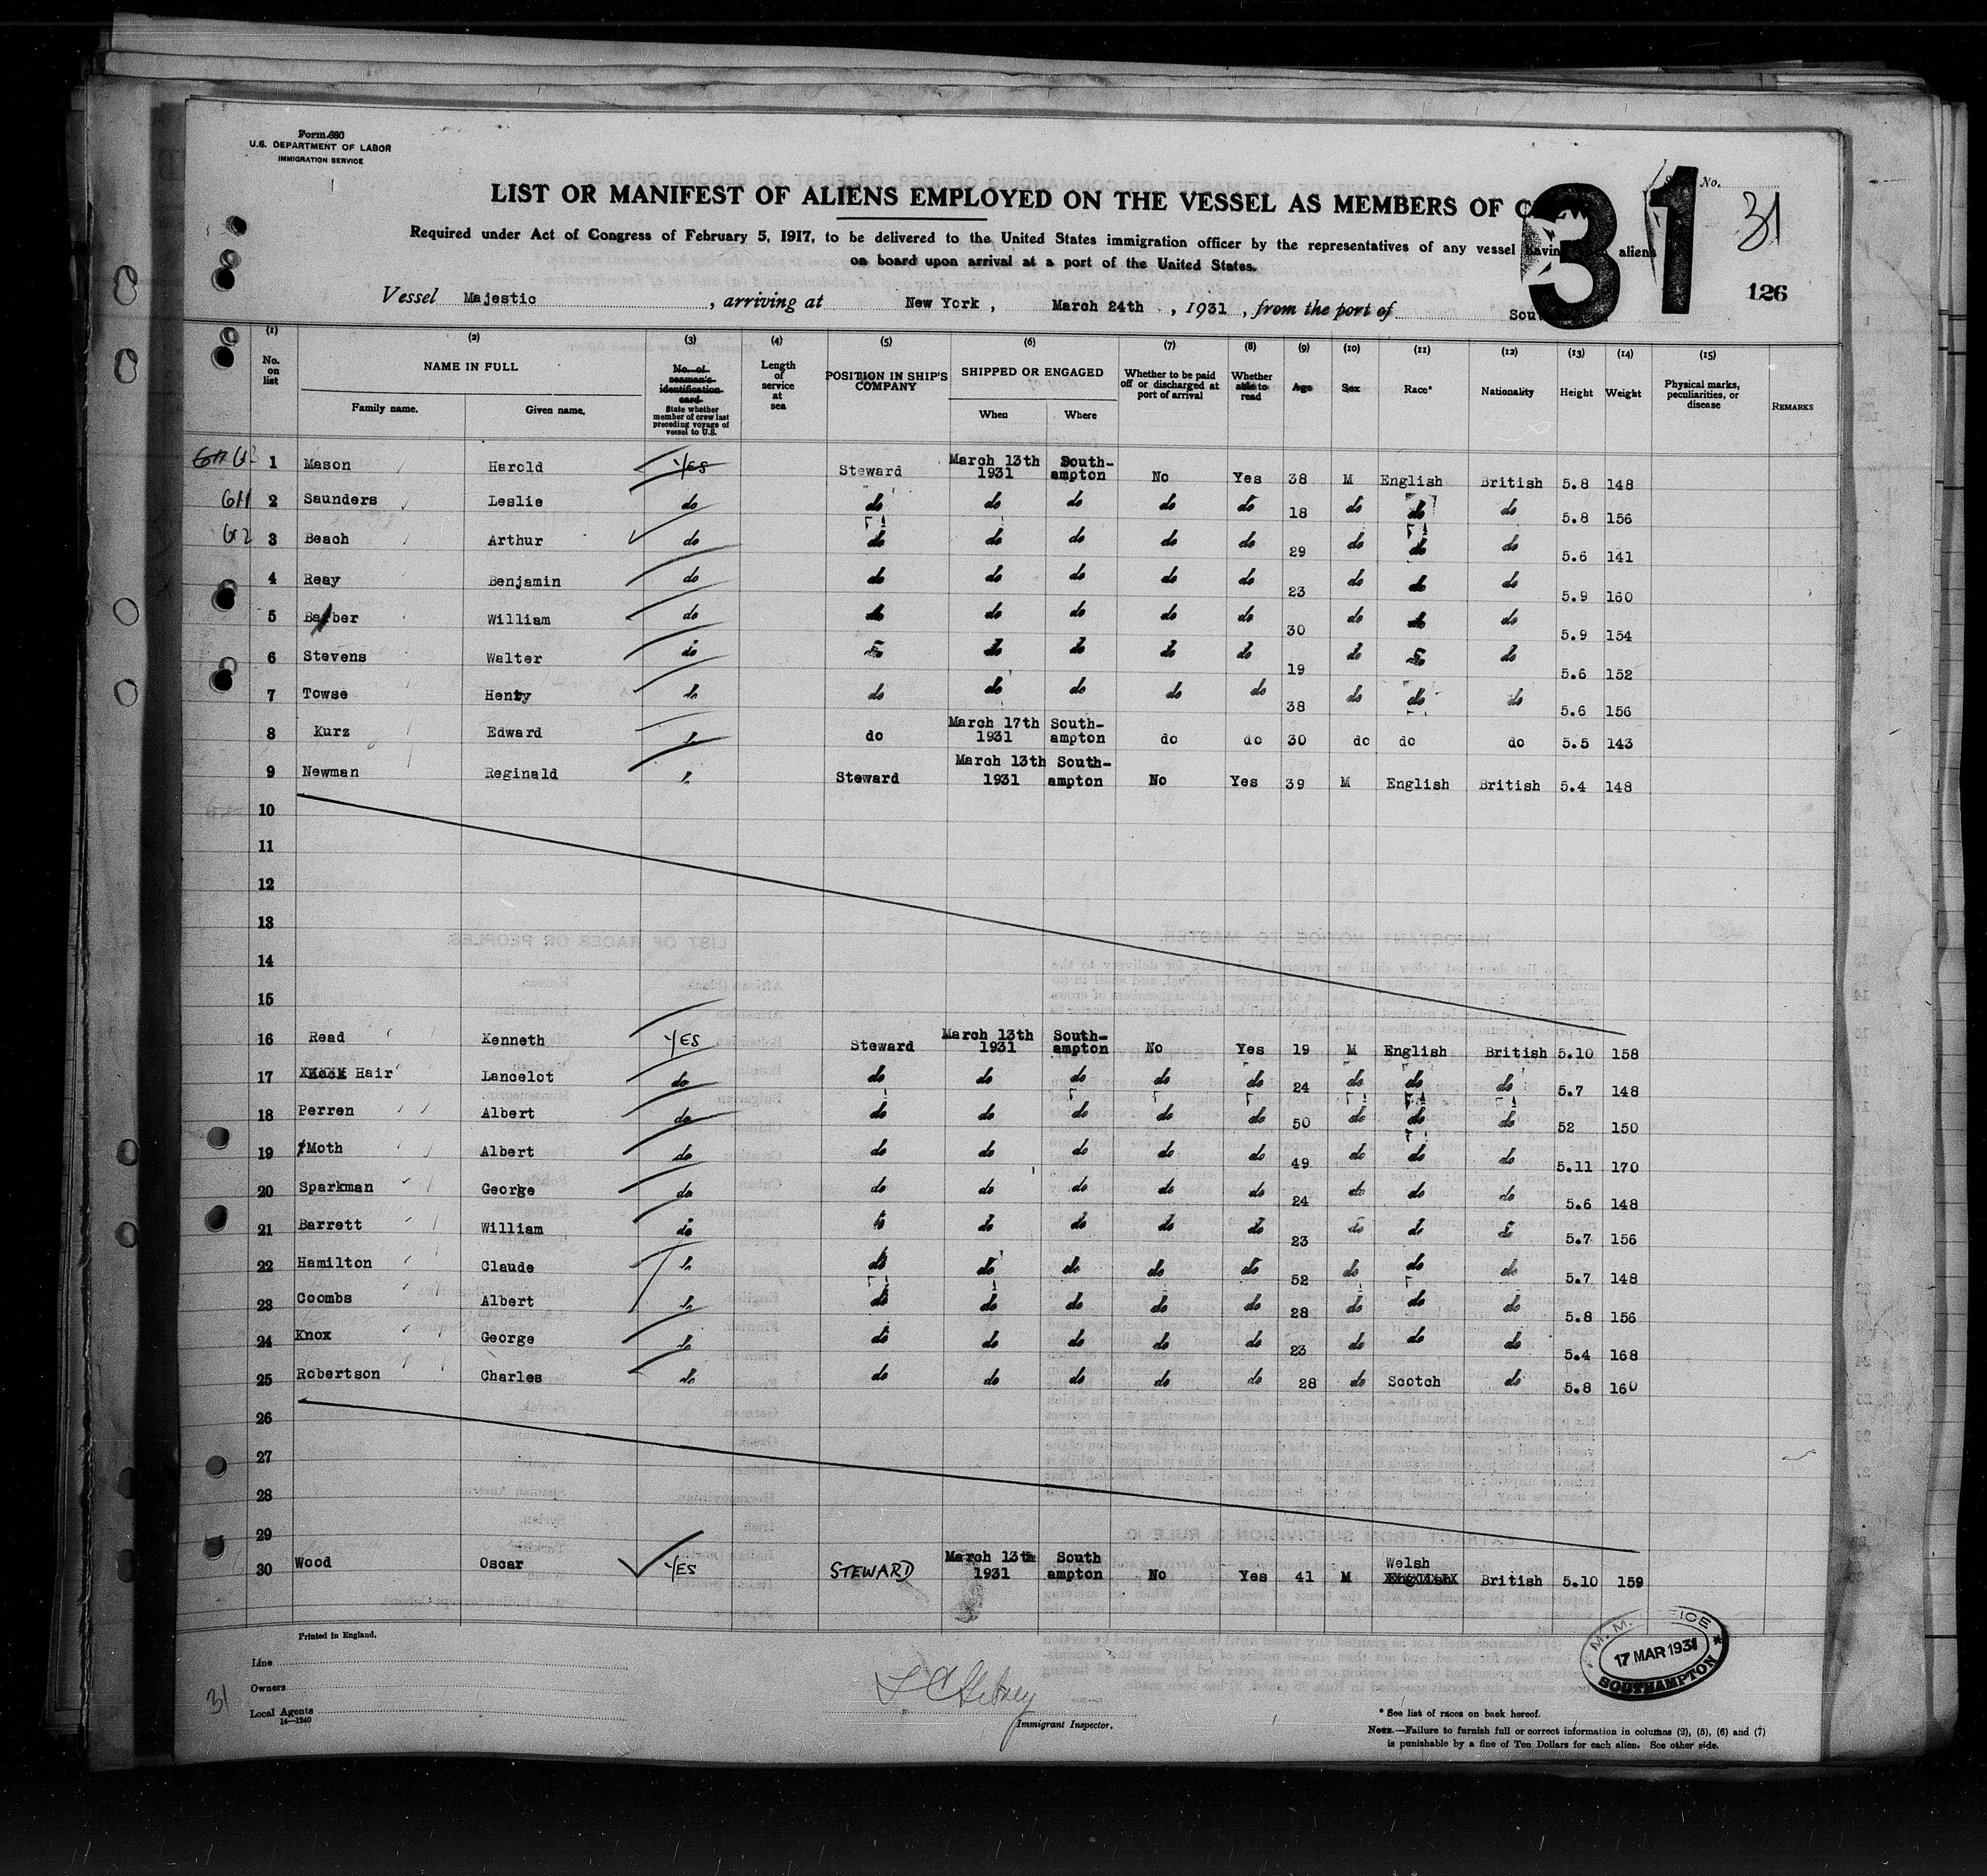 Form 680
U.S. DEPARTMENT OF LABOR
IMMIGRATION SERVICE
LIST OR MANIFEST OF ALIENS EMPLOYED ON THE VESSEL AS MEMBERS OF CREW
No. 31
31
Required under Act of Congress of February 5, 1917, to be delivered to the United States immigration officer by the representatives of any vessel having aliens
on board upon arrival at a port of the United States.
126
Vessel Majestic, arriving at New York, March 24th, 1931, from the port of
(1) (2) (3) (4) (5) (6) (7) (8) (9) (10) (11) (12) (13) (14) (15)
No. on list
NAME IN FULL
Family name. Given name.
No. of seaman's identification card
State whether member of crew last preceding voyage of vessel to U.S.
Length of service at sea
POSITION IN SHIP'S COMPANY
SHIPPED OR ENGAGED
When Where
Whether to be paid off or discharged at port of arrival
Whether able to read
Age
Sex
Race*
Nationality
Height
Weight
Physical marks, peculiarities, or disease
REMARKS
1 Mason Harold YES Steward March 13th 1931 South-ampton No Yes 38 M English British 5.8 148
611 2 Saunders Leslie do do do do do do 18 do do do 5.8 156
612 3 Beach Arthur do do do do do do 29 do do do 5.6 141
4 Reay Benjamin do do do do do do 23 do do do 5.9 160
5 Barber William do do do do do do 30 do do do 5.9 154
6 Stevens Walter do do do do do do 19 do do do 5.6 152
7 Towse Henry do do do do do do 38 do do do 5.6 156
8 Kurz Edward do do March 17th 1931 South-ampton do do 30 do do do 5.5 143
9 Newman Reginald do Steward March 13th 1931 South-ampton No Yes 39 M English British 5.4 148
10
11
12
13
14
15
16 Read Kenneth YES Steward March 13th 1931 South-ampton No Yes 19 M English British 5.10 158
17 Hair Lancelot do do do do do do 24 do do do 5.7 148
18 Perren Albert do do do do do do 50 do do do 52 150
19 Moth Albert do do do do do do 49 do do do 5.11 170
20 Sparkman George do do do do do do 24 do do do 5.6 148
21 Barrett William do do do do do do 23 do do do 5.7 156
22 Hamilton Claude do do do do do do 52 do do do 5.7 148
23 Coombs Albert do do do do do do 28 do do do 5.8 156
24 Knox George do do do do do do 23 do do do 5.4 168
25 Robertson Charles do do do do do do 28 do Scotch do 5.8 160
26
27
28
29
30 Wood Oscar YES STEWARD March 13th 1931 South ampton No Yes 41 M Welsh English British 5.10 159
Printed in England.
Line
Owners
Local Agents
14—1240
31
Immigrant Inspector.
M. M. OFFICE
17 MAR 1931
SOUTHAMPTON
* See list of races on back hereof.
NOTE.—Failure to furnish full or correct information in columns (2), (5), (6) and (7)
is punishable by a fine of Ten Dollars for each alien. See other side.